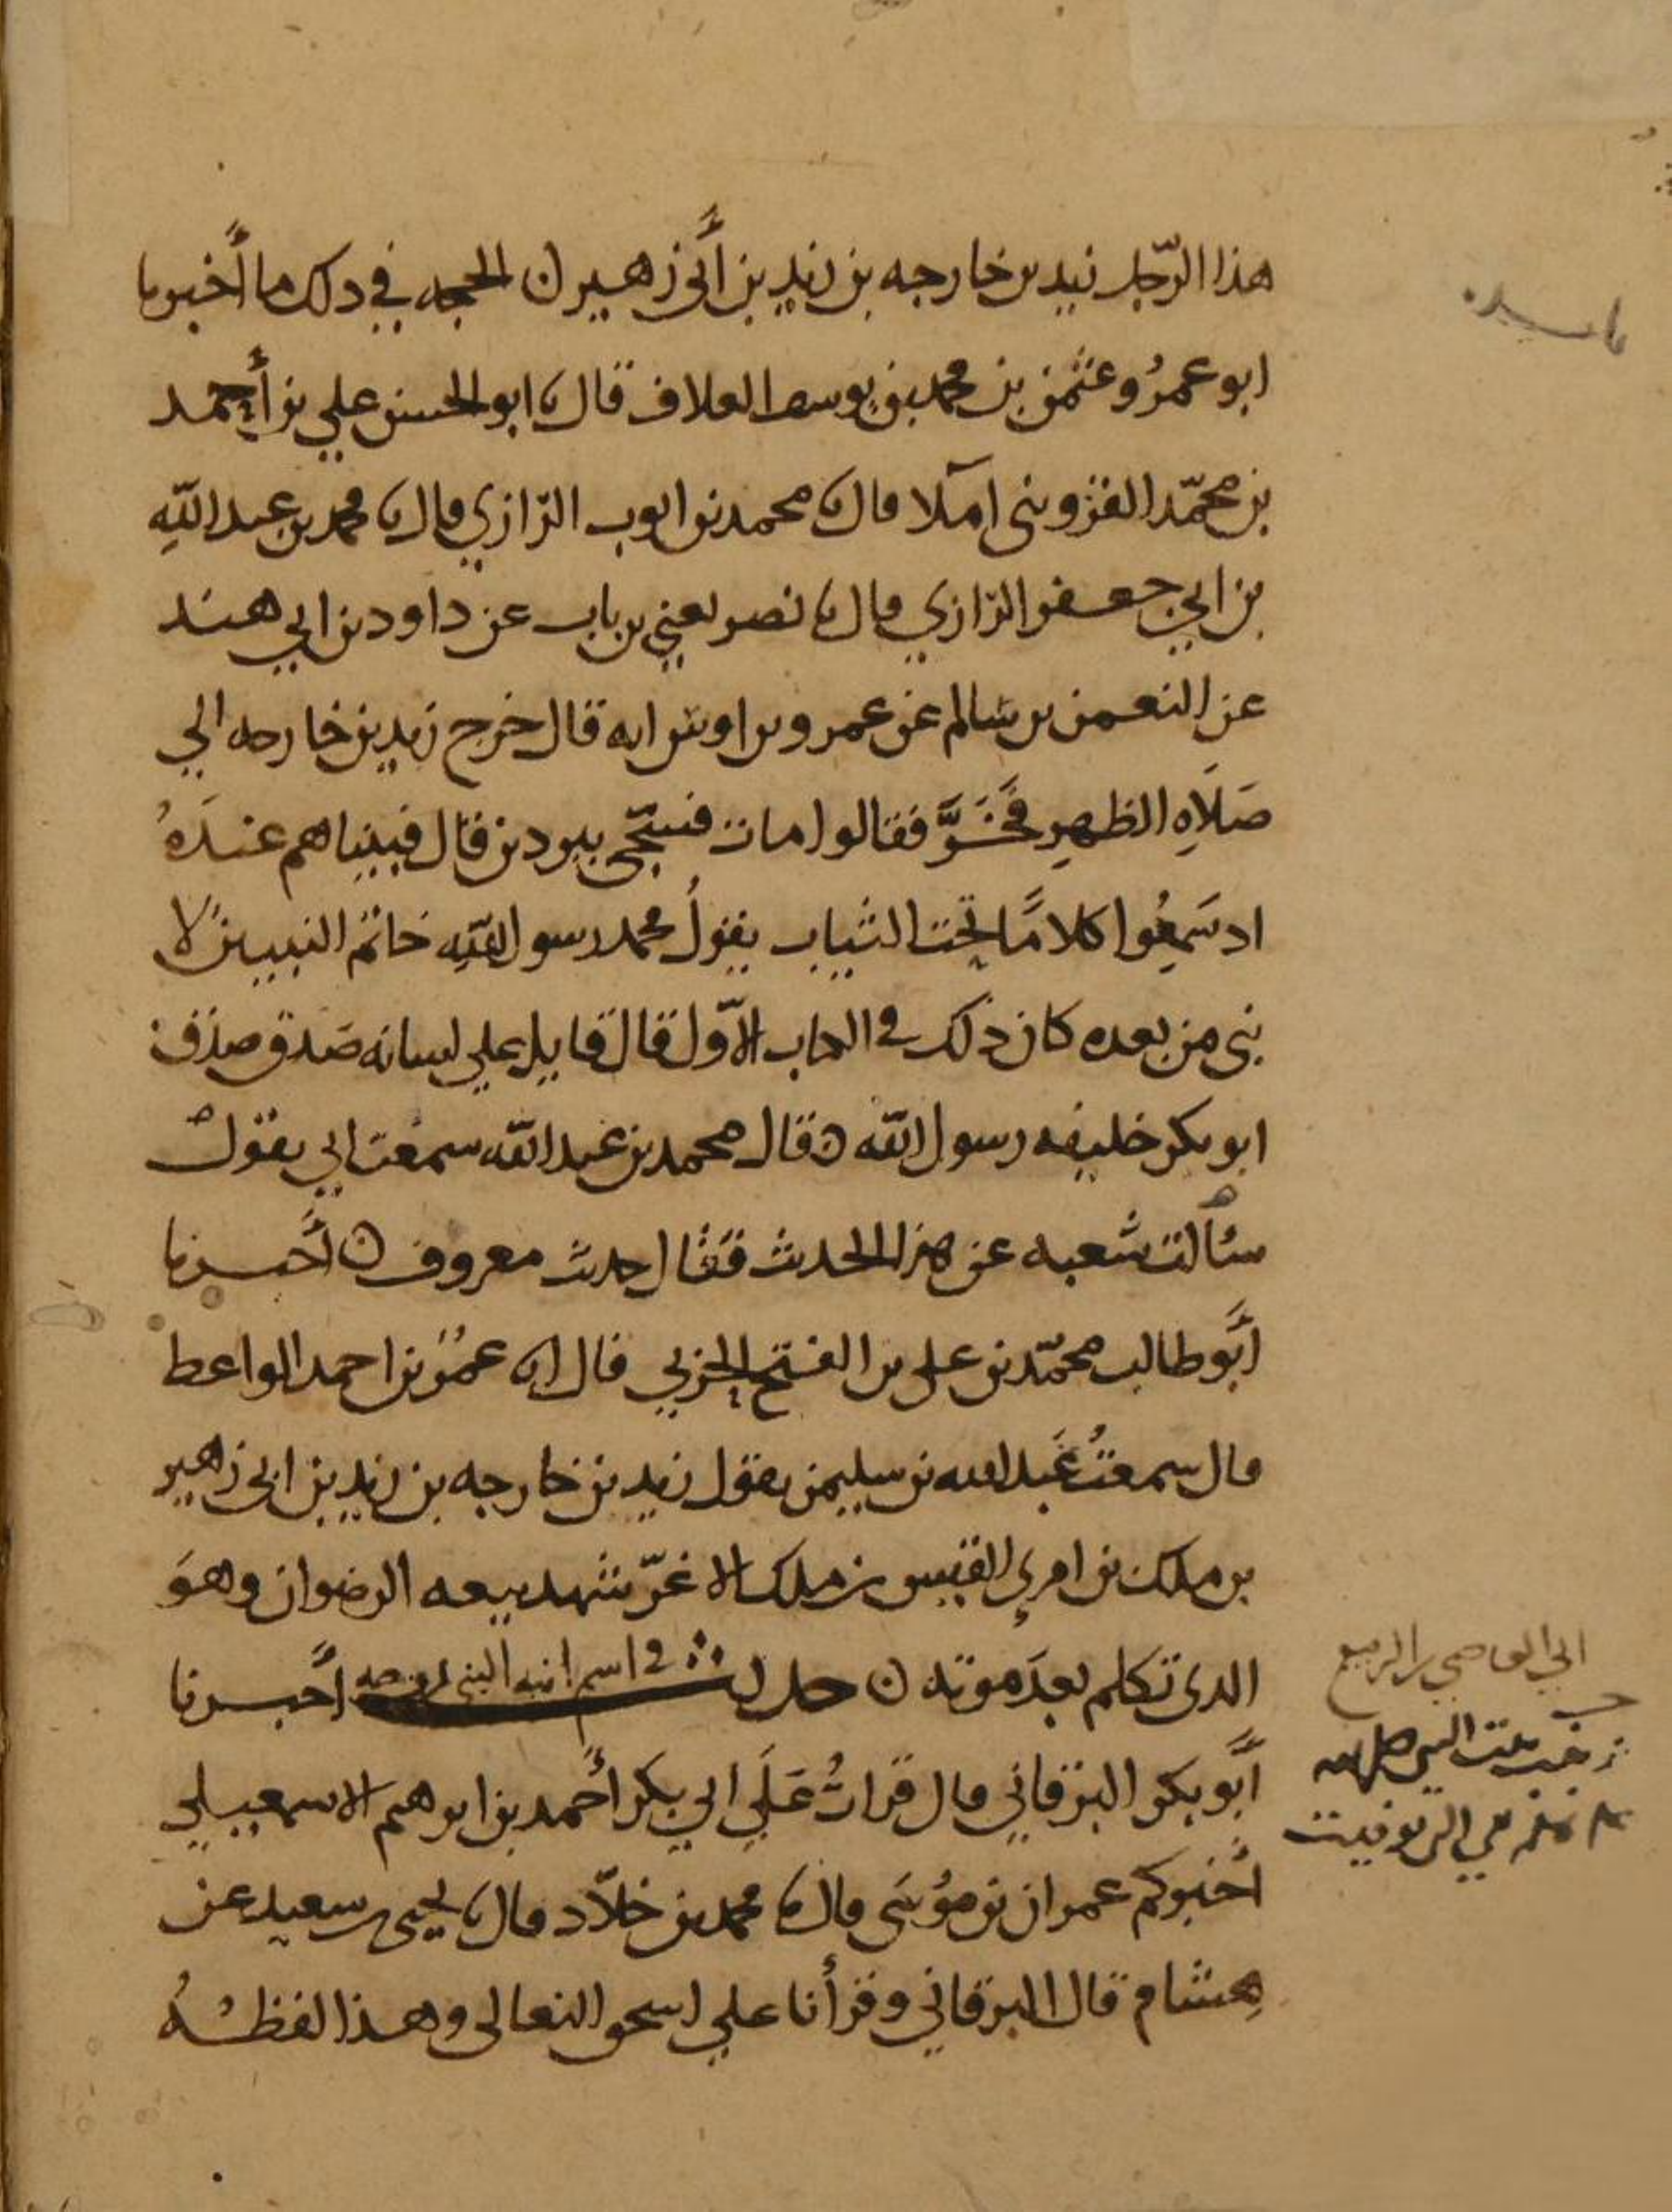 هذا الرّجل زيد بن خارجه بن زيد بن أبي زهير ن الحجه في ذلك ما أخبرنا
ابو عمرُو عثمن بن محمد بن يوسف العلاف قال نا ابو الحسن علي بن أحمد
بن محمّد القزويني املآ قال نا محمد بن ايوب الرّازي قال نا محمد بن عبد اللّهِ
بن ابي جعفر الرّازي قال نا نصر يعني بن باب عن داود بن ابي هند
عن النعمن بن سالم عن عمرو بن اوس انه قال خرج زيد بن خارجه الي
صَلَاهِ الظهرِ فَخَرَّ فقالوا مات فسجّي ببردين قال فبينا هم عندَهُ
اذ سَمِعُوا كلامًا تحت الثياب يقولُ محمد رسول اللّهِ خاتم النبيين لا
نبي من بعده كان ذلك في الكتاب الأوّل قال قايل علي لسانه صَدق صدق
ابو بكر خليفه رسول اللّه ه قال محمد بن عبد اللّه سمعت ابي يقول
سألت شعبه عن هذا الحديث فقال حديث معروف ن أخبرنا
أبُو طالب محمّد بن علي بن الفتح الحربي قال انا عمرُ بن احمد الواعظ
قال سمعتُ عَبد الله بن سليمن يقول زيد بن خارجه بن زيد بن ابي زهير
بن ملك بن امرئ القيس بن ملك الاغرّ شهد بيعه الرضوان وهوَ
الذي تكلم بعدَ موته ن حديث في اسم ابنه النبي أخبرنا
أبُو بكر البرقاني قال قراتُ عَلَي ابي بكر أحمد بن ابرهيم الاسمعيلي
أخبركم عمران بن موُسَي قال نا محمد بن خلاّد قال نا يحيى بن سعيد عن
هِشام قال البرقاني وقرأنا علي اسحق النعالي وهذا لفظهُ
ابي العاصي بن الربيع
زينب بنت النبي صلى الله
هي التي توفيت